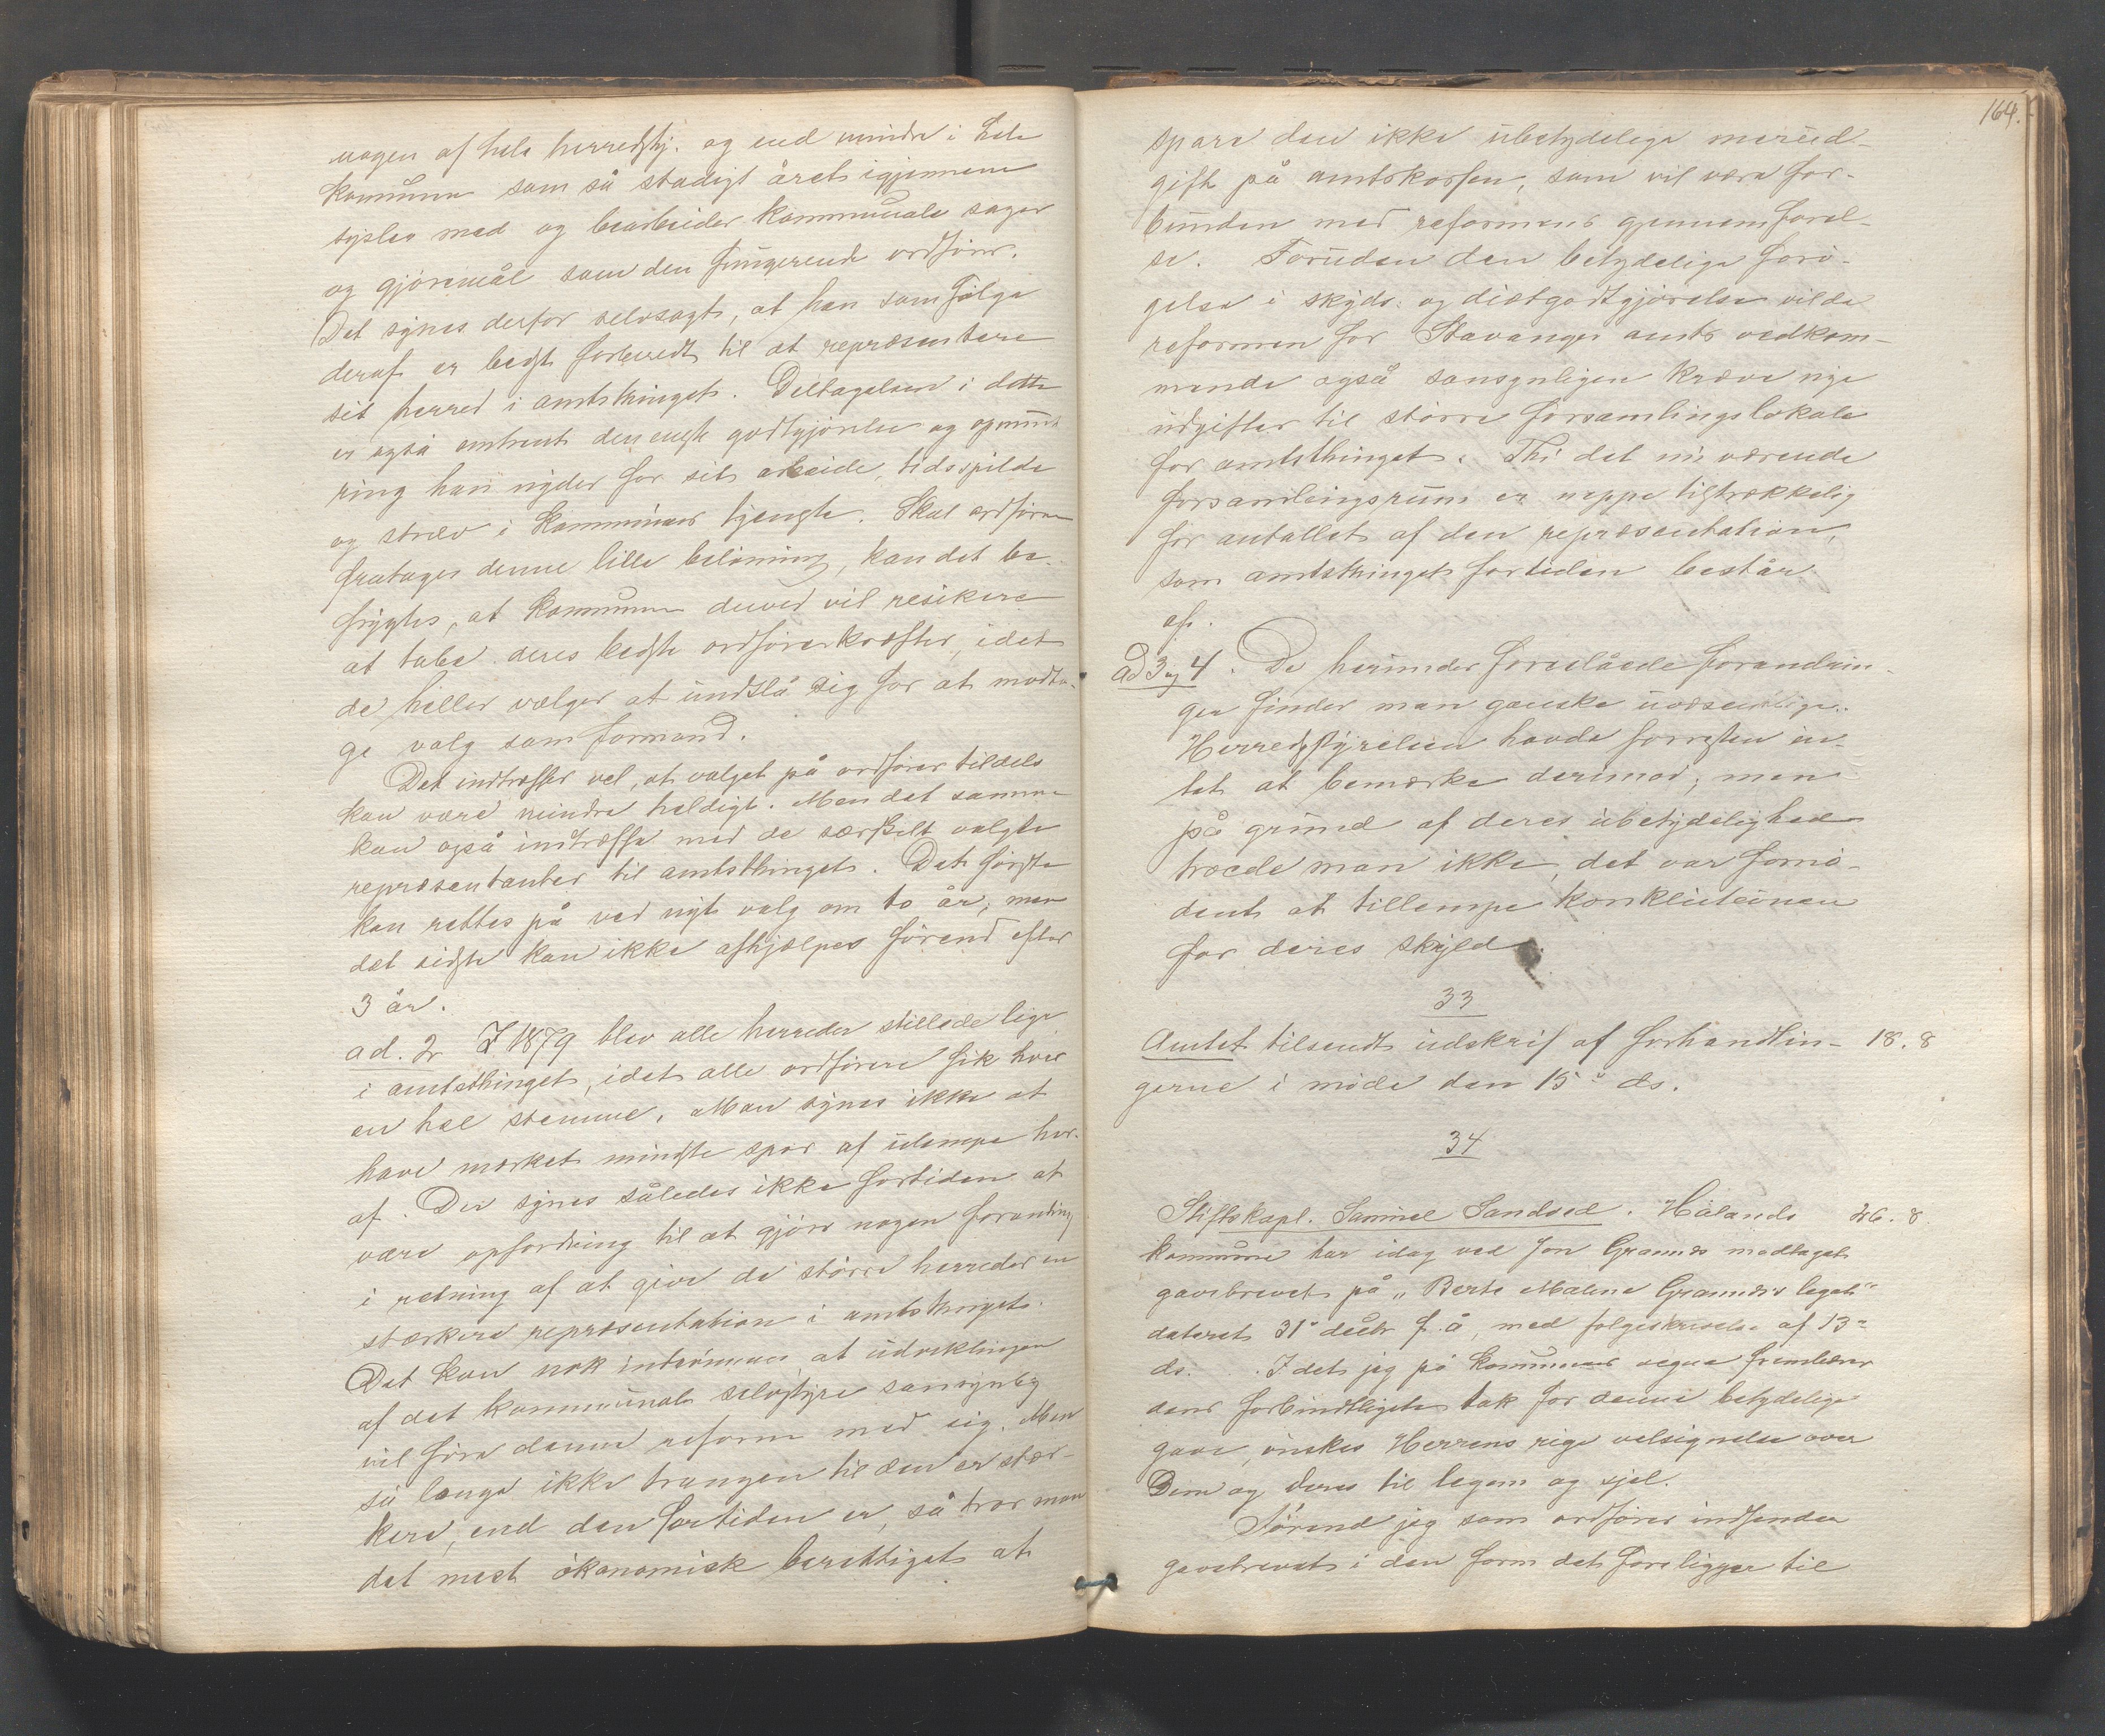 nogen af hele herredsty. og end mindre i hele
kommunen som så stadigt året igjennem
sysler med og bearbeider kommunale sager
og gjøremål som den fungerende ordfører.
Det synes derfor selvsagt, at han som følge
deraf er bedst forberedt til at repræsentere
sit herred i amtsthinget. Deltagelsen i dette
er også omtrent den eneste godtgjørelse og opmunt
ring han nyder for sit arbeide, tidsspilde
og stræv i kommunens tjeneste. Skal ordføren
fratages denne lille belønning, kan det be-
frygtes, at kommunen derved vil resikere
at tabe deres bedste ordførerkræfter, idet
de heller vælger at undslå sig for at modta-
ge valg som formand.
Det indtræffer vel, at valget på ordfører tildels
kan være mindre heldigt. Men det samme
kan også indtræffe med de særskilt valgte
repræsentanter til amtsthinget. Det første
kan rettes på ved nyt valg om to år, men
det sidste kan ikke afhjælpes førend efter
3 år.
ad. 2 I 1879 blev alle herreder stillede lige
i amtsthinget, idet alle ordførere fik hver
en hel stemme. Man synes ikke at
have mærket mindste spor af ulempe her-
af. Der synes således ikke fortiden at
være opfordring til at gjøre nogen forandring
i retning af at give de større herreder en
stærkere repræsentation i amtsthinget.
Det kan nok indrømmes at udviklingen
af det kommunale selvstyre sansynlig
vil føre denne reform med sig. Men
så længe ikke trangen til den er stær-
kere, end den fortiden er, så tror man
det mest økonomisk berettiget at
164.
spare den ikke ubetydelige merud-
gift på amtskassen, som vil være for-
bunden med reformens gjennemførel-
se. Foruden den betydelige forø-
gelse i skyds- og diætgodtgjørelse vilde
reformen for Stavanger amts vedkom-
mende også sansynligen kræve nye
udgifter til større forsamlingslokale
for amtsthinget. Thi det nu værende
forsamlingsrum er neppe tilstrækkelig
for antallet af den repræsentation,
som amtsthinget fortiden består
af.
Ad 3 og 4. De herunder foreslåede forandrin-
ger finder man ganske uvæsentlige.
Herredsstyrelsen havde forresten in-
tet at bemærke derimod; men
på grund af deres ubetydelighed
troede man ikke, det var fornø-
dent at tillempe konklusionen
for deres skyld.
33
Amtet tilsendt udskrif af forhandlin- 18. 8
gerne i møde den 15de ds.
34
Stiftskapl. Samuel Sandved. Hålands 26. 8
kommune har idag ved Jon Grannæs modtaget
gavebrevet på „Berte Malene Grannæs's legat"
dateret 31te decbr f. å, med følgeskrivelse af 13de
ds. Idet jeg på kommunens vegne frembærer
dens forbindtligste tak for denne betydelige
gave, ønskes Herrens rige velsignelse over
Dem og deres til legem og sjel.
Førend jeg som ordfører indsender
gavebrevet i den form det foreligger til